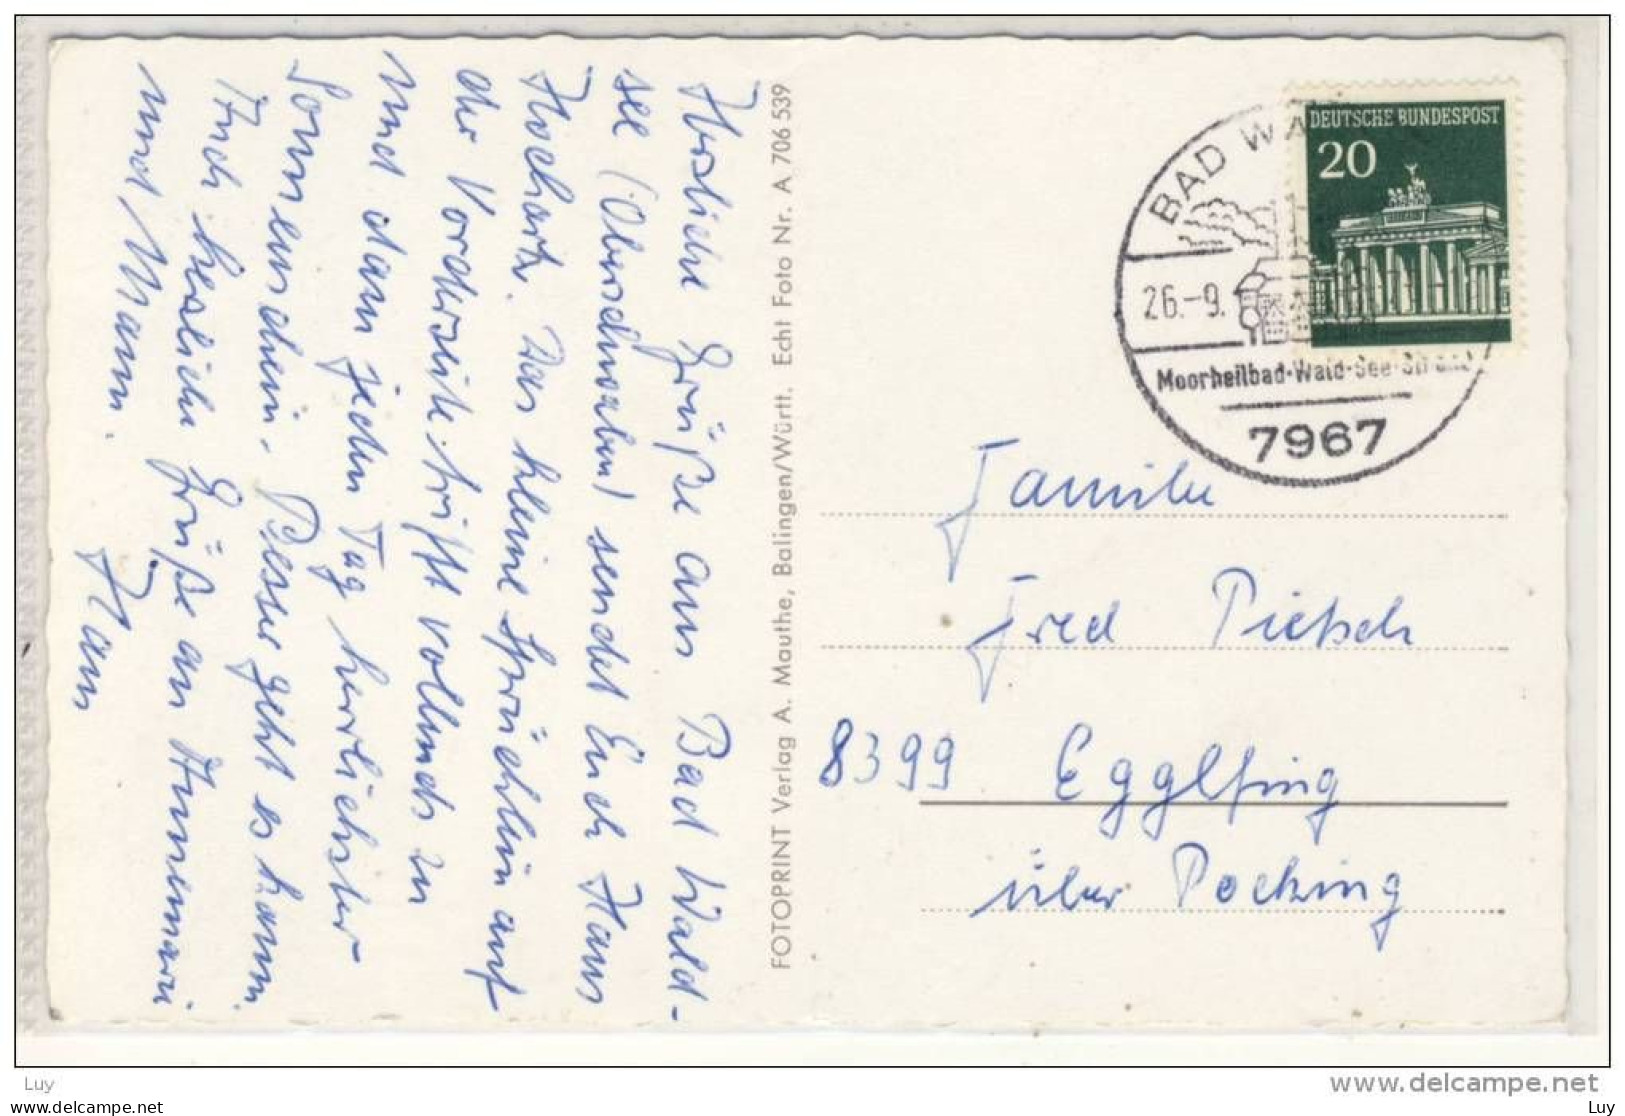 Herzliche Grüße aus Bad Wald-
see (Oberschwaben) sendet Euch Hans
Hochartz. Das kleine Sprüchlein auf
der Vorderseite trifft vollends zu
und dann jeden Tag herrlichster
Sonnenschein. Besser geht es kaum.
Auch herzliche Grüße an Annemarie
und Mann.
Hans
FOTOPRINT Verlag A. Mauthe, Balingen/Württ. Echt Foto Nr. A 706 539
DEUTSCHE BUNDESPOST
20
BAD WA
26.-9.
Moorheilbad·Wald·See·
7967
Familie
Fred Pietsch
8399 Egglfing
über Pocking
www.delcampe.net
Luy
www.delcampe.net
Luy